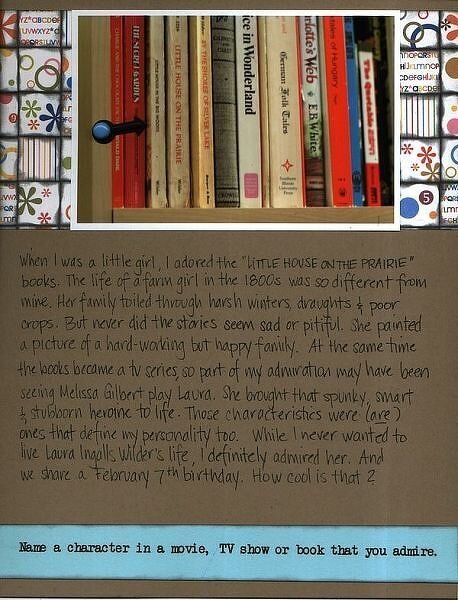 THE SECRET GARDEN
LITTLE HOUSE ON THE PRAIRIE
BY THE SHORES OF SILVER LAKE
ice in Wonderland
German Folk Tales
Southern Illinois University Press
rlotte's Web E.B. White
Tales of Hungary
When I was a little girl, I adored the "LITTLE HOUSE ON THE PRAIRIE"
books. The life of a farm girl in the 1800s was so different from
mine. Her family toiled through harsh winters, draughts & poor
crops. But never did the stories seem sad or pitiful. She painted
a picture of a hard-working but happy family. At the same time
the books became a tv series, so part of my admiration may have been
seeing Melissa Gilbert play Laura. She brought that spunky, smart
& stubborn heroine to life. Those characteristics were (are)
ones that define my personality too. While I never wanted to
live Laura Ingalls Wilder's life, I definitely admired her. And
we share a February 7th birthday. How cool is that?
Name a character in a movie, TV show or book that you admire.